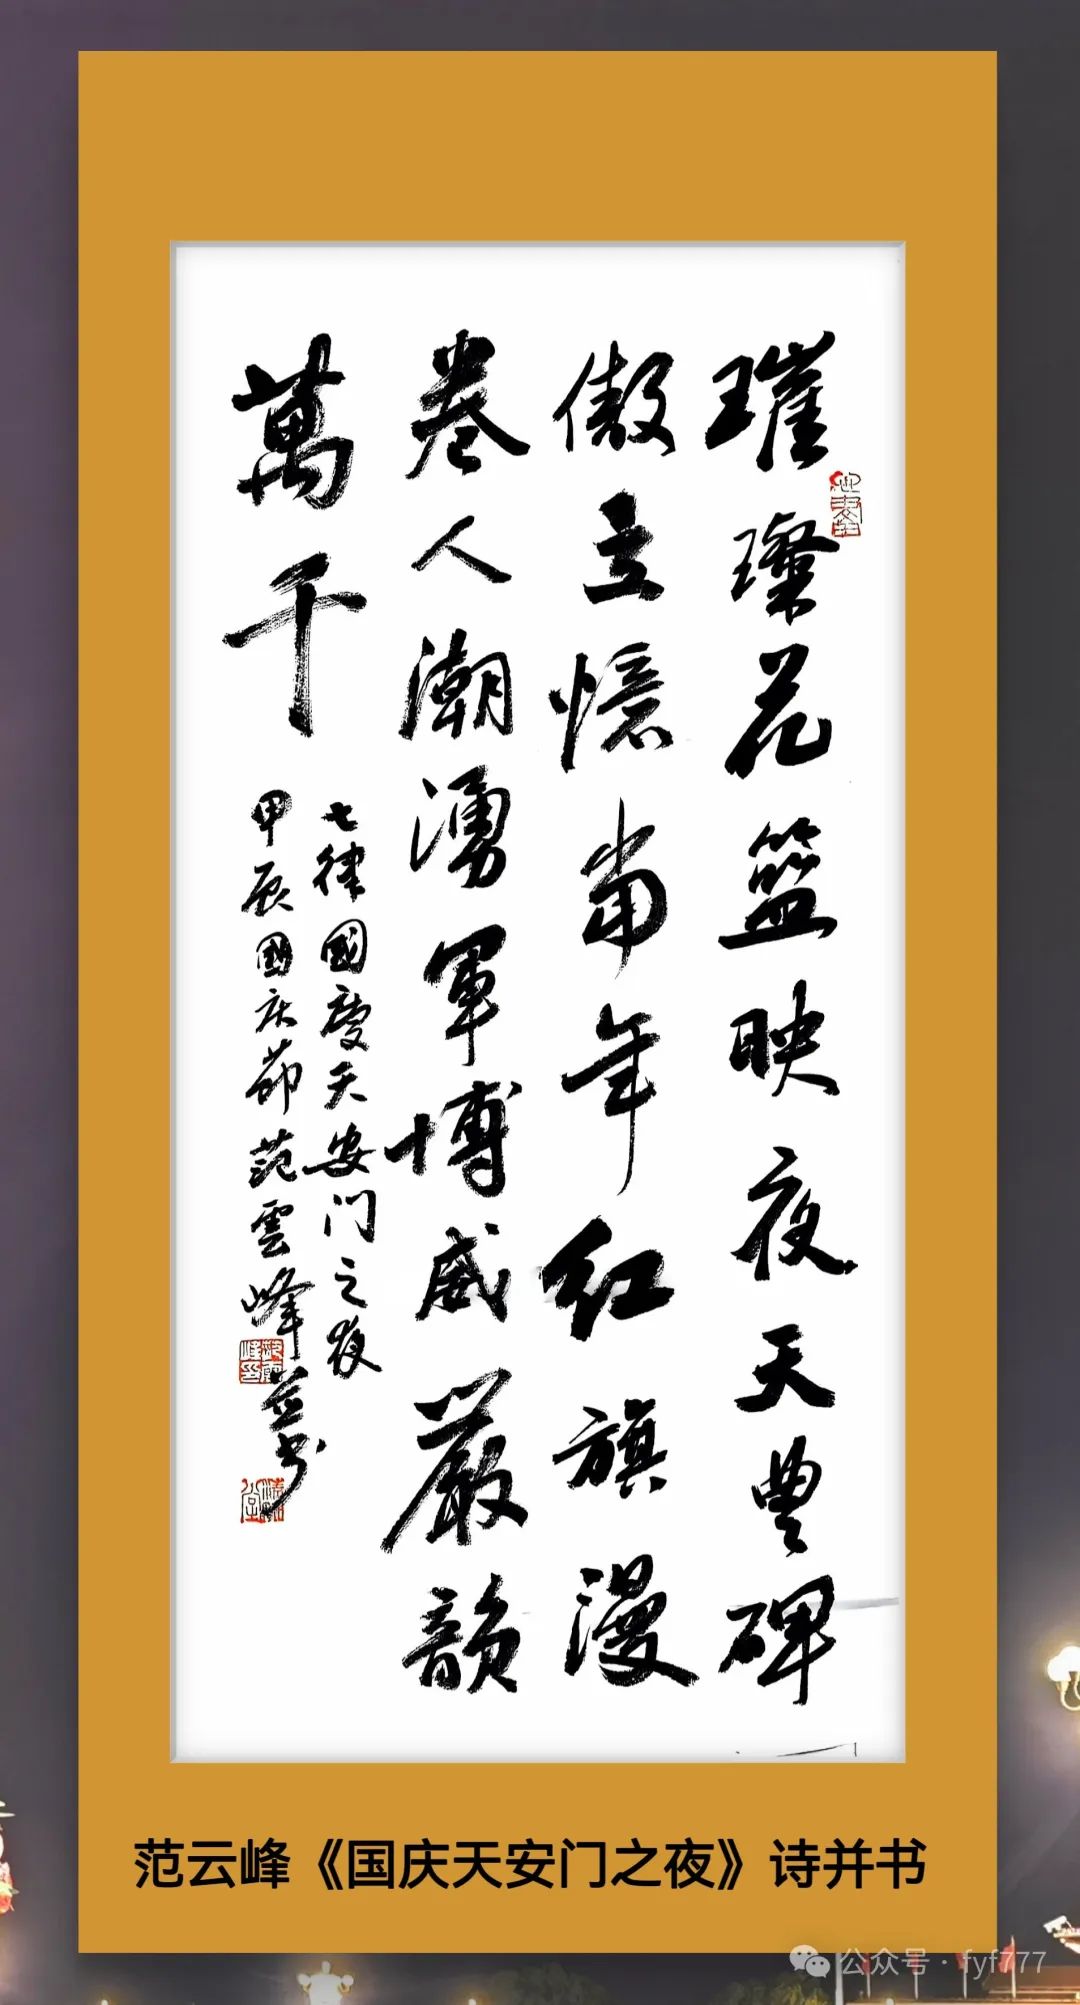 璀璨花篮映夜天丰碑
傲立憶当年红旗漫
卷人潮湧軍博威嚴韻
萬千
七律國慶天安门之夜
甲辰國庆节范雲峰並书
范云峰《国庆天安门之夜》诗并书
公众号·fyf777